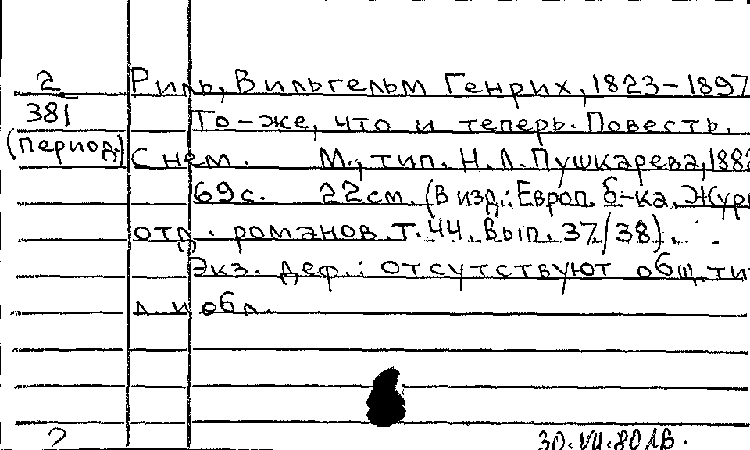 2
381
(Период.)
Риль, Вильгельм Генрих, 1823-1897
То-же, что и теперь. Повесть.
С нем. М., тип. Н.Л. Пушкарева, 1882
69с. 22см. (В изд.: Европ. б-ка. Жур
отд. романов. Т. 44. Вып. 37/38).
Экз. деф.: отсутствуют общ. ти
л и обл.
2
30.VII.80